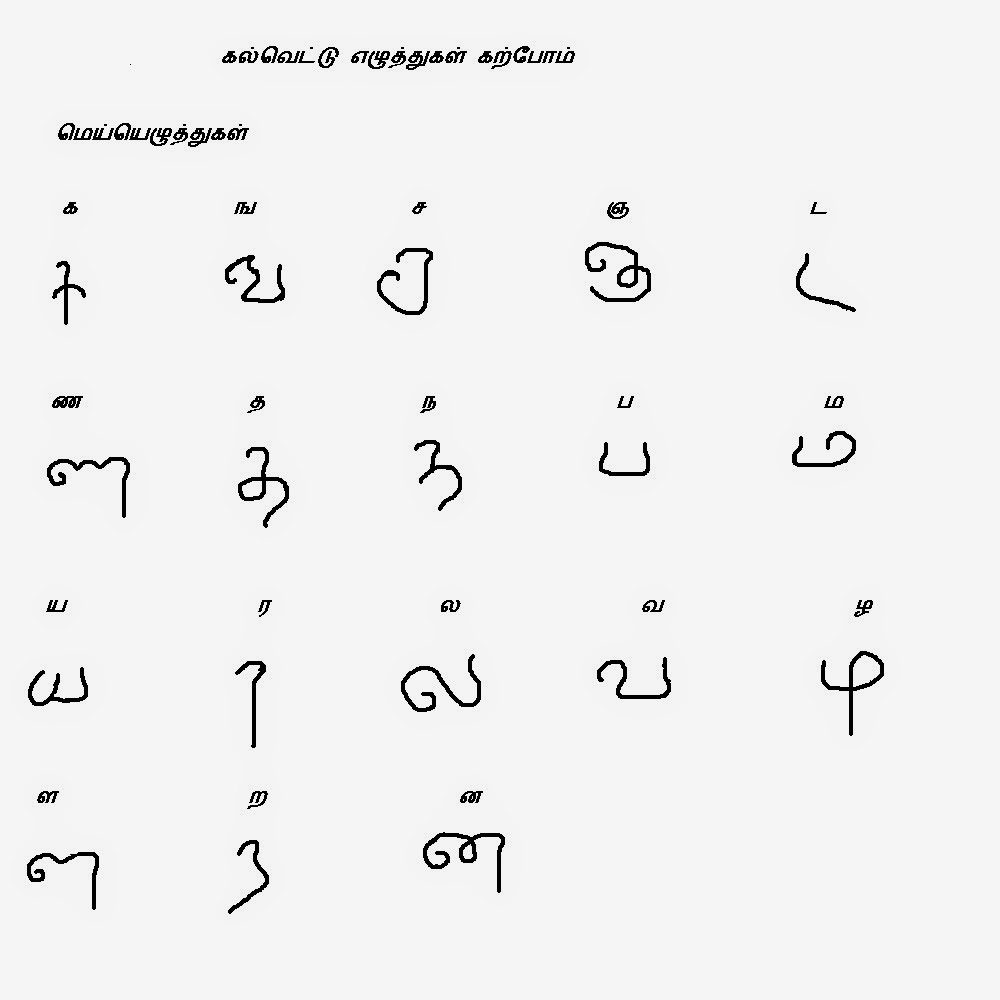 கல்வெட்டு எழுத்துகள் கற்போம்
மெய்யெழுத்துகள்
க ங ச ஞ ட
ண த ந ப ம
ய ர ல வ ழ
ள ற ன